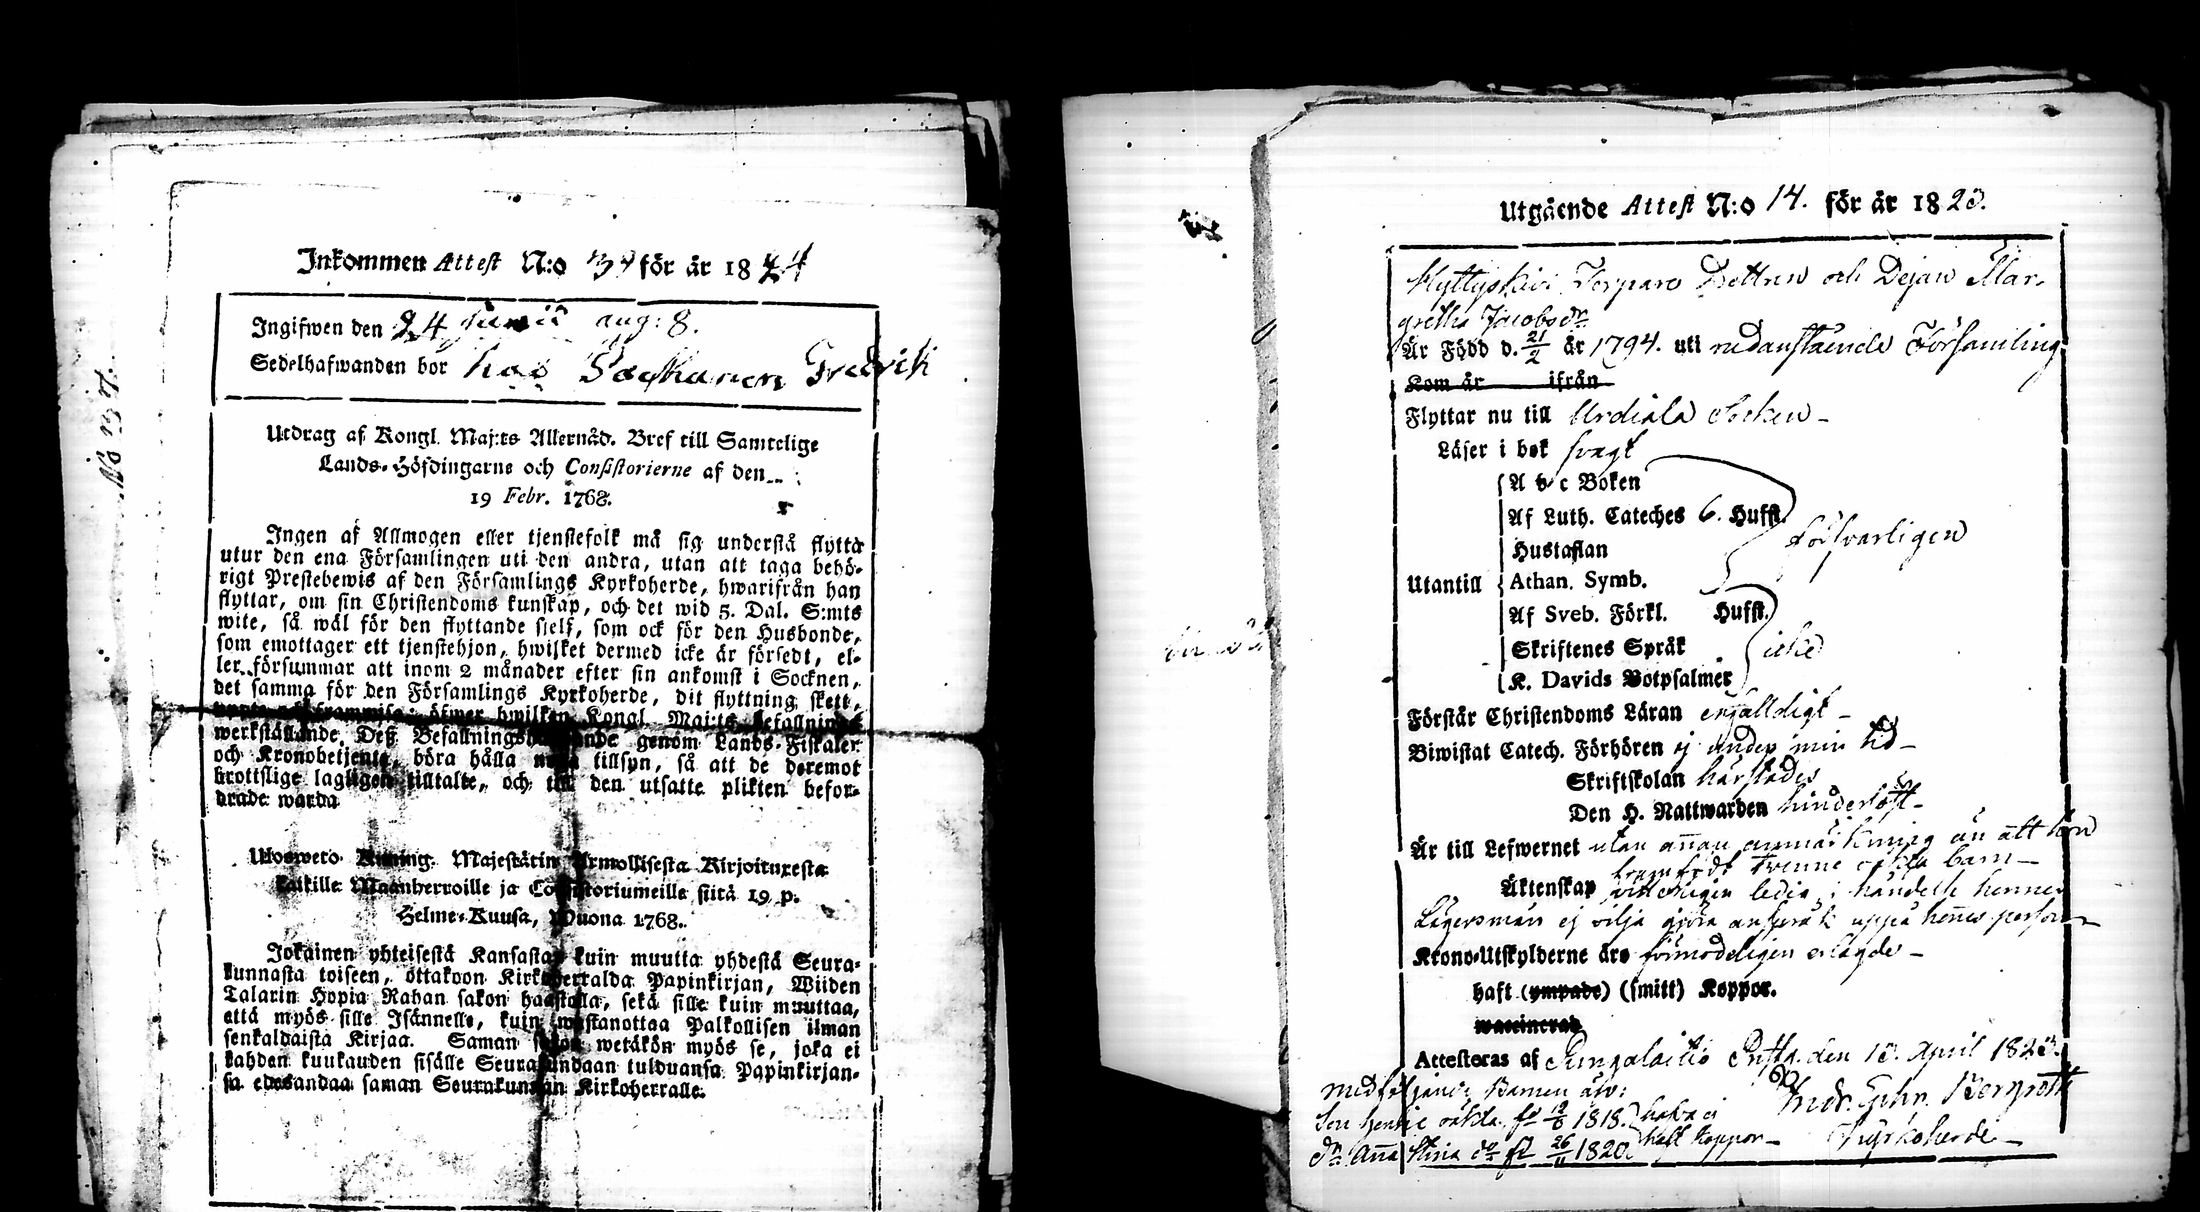 Inkommen Attest N:o 34 för år 1824
Ingifwen den 24 Junii aug: 8.
Sedelhafwanden bor hos Fredrik
Utdrag af Kongl. Maj:ts Allernåd. Bref till Samtelige
Lands-Höfdingarne och Consistorierne af den
19 Febr. 1768.
Ingen af Allmogen eller tjenstefolk må sig understå flytta
utur den ena Församlingen uti den andra, utan att taga behö-
rigt Prestebewis af den Församlings Kyrkoherde, hwarifrån han
flyttar, om sin Christendoms kunskap, och det wid 5. Dal. S:mts
wite, så wäl för den flyttande sjelf, som ock för den Husbonde,
som emottager ett tjenstehjon, hwilket dermed icke är försedt, el-
ler försummar att inom 2 månader efter sin ankomst i Socknen,
det samma för den Församlings Kyrkoherde, dit flyttning skett,
framwisa; öfwer hwilken Kongl. Maj:ts Befallnings
werkställande Deß Befallningshafwande genom Lands-Fiskaler
och Kronobetjente, böra hålla noga tillsyn, så att de deremot
brottslige lagligen tilltalte, och till den utsatte plikten befor-
drade warda
Ulosweto Kuning. Majestätin Armollisesta Kirjoituxesta
kaikille Maanherroille ja Consistoriumeille siitä 19 p.
Helme-Kuusa, Wuona 1768.
Jokainen yhteisestä Kansasta, kuin muutta yhdestä Seura-
kunnasta toiseen, ottakoon Kirkkoherralda Papinkirjan, Wiiden
Talarin Hopia Rahan sakon haastolla, sekä sille kuin muuttaa,
että myös sille Isännelle, kuin wastanottaa Palkollisen ilman
senkaldaista Kirjaa. Saman sakon wetäkön myös se, joka ei
kahden kuukauden sisälle Seurakundaan tulduansa Papinkirjan-
sa edesandaa saman Seurakunnan Kirkoherralle.
Utgående Attest N:o 14. för år 1823.
Torpare Dottren och Dejan Mar-
gretha Jacobsdr
Är Född d. 21/2 år 1794. uti nedanstående Församling
Kom år ifrån
Flyttar nu till Urdiala Socken -
Läser i bok svagt
Utantill
A b c Boken
Af Luth. Cateches 6. Hufst.
Hustaflan
Athan. Symb.
försvarligen
Af Sveb. Förkl. Hufst.
Skriftenes Språk
K. Davids Botpsalmer
icke
Förstår Christendoms Läran enfalldigt -
Biwistat Catech. Förhören ej under min tid -
Skriftskolan härstädes
Den H. Nattwarden hinderlöst -
Är till Lefwernet utan annan anmärkning än att hon
framfödt tvenne oäkta barn -
Äktenskap ledig, i händelse hennes
Lägersmän ej vilja göra anspråk uppå hennes person -
Krono-Utskylderne äro förmodeligen erlagde -
haft (ympade) (smitt) Koppor.
waccinerad
Attesteras af Pungalaitio Prestg. den 13. April 1823.
Andr. Gbr. Bergroth
Kyrkoherde -
medföljande Barnen äro:
Son Henric oäkta fd 12/6 1818. haka ej
dr Anna Stina do fd 26/11 1820. haft koppor -